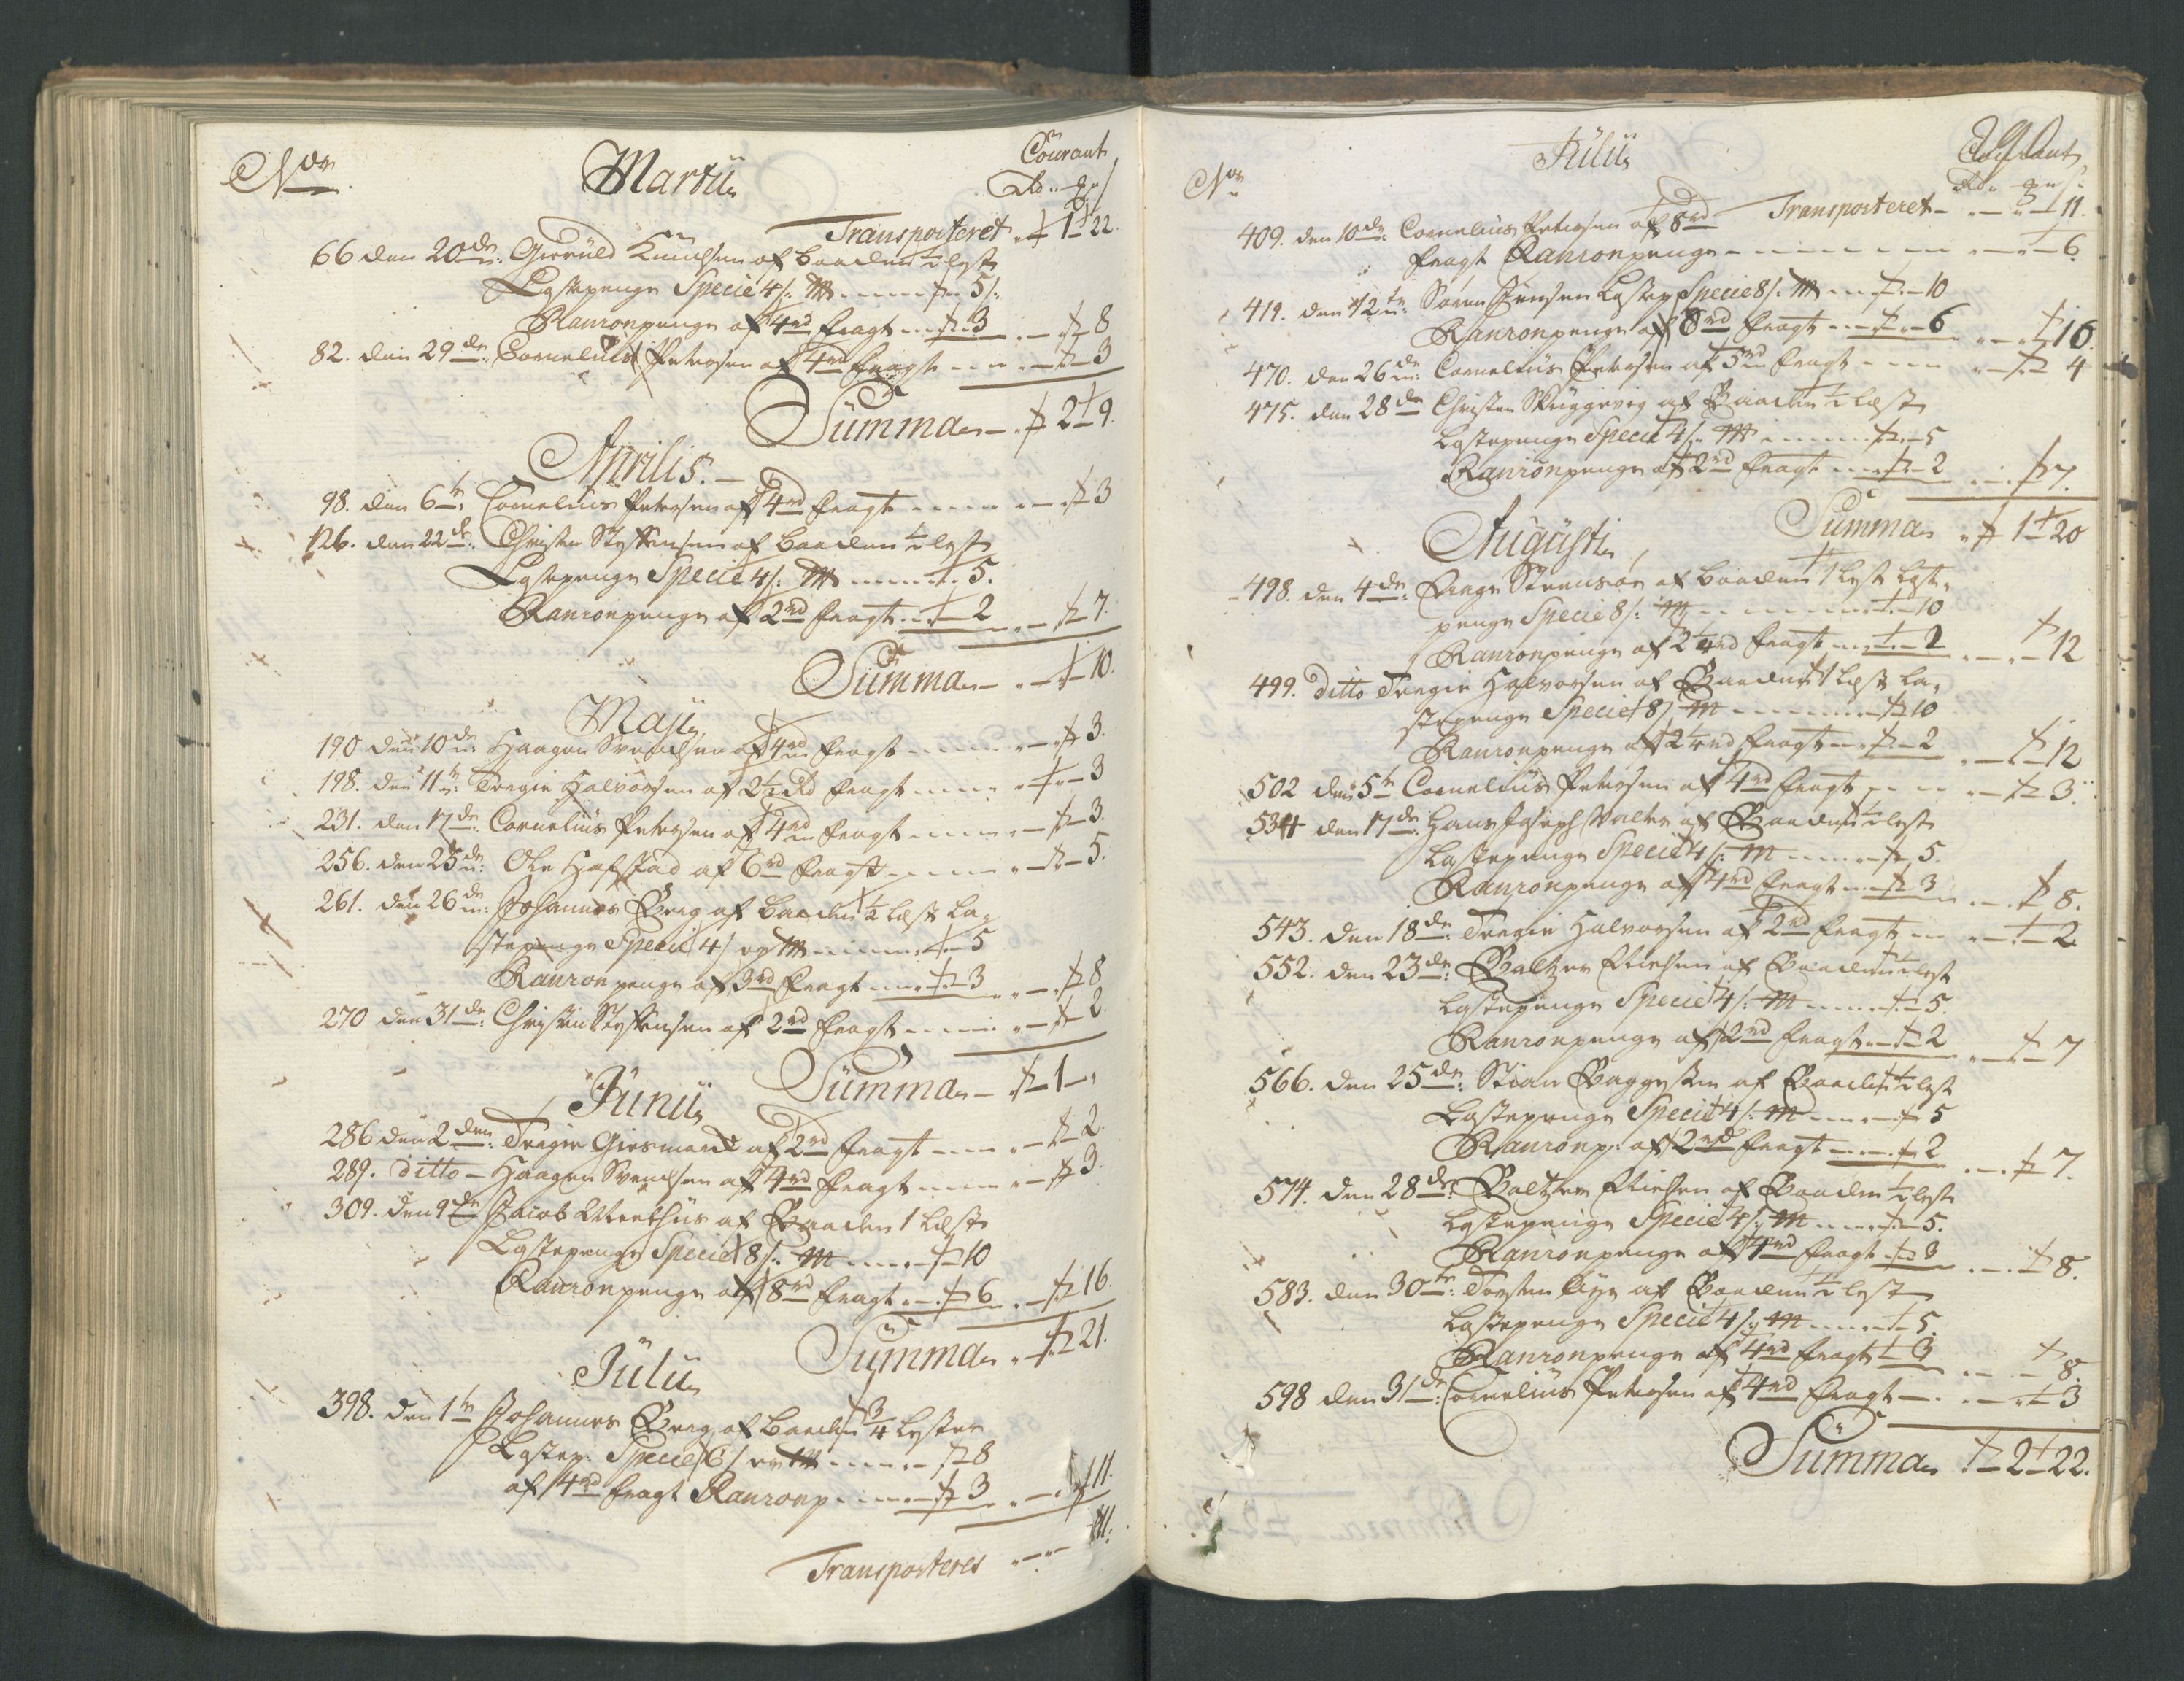 Nos. Martii Courant
Rd. mk s
Transporteret 1 22.
66 den 20de: Gierüld Knudsen af baaden ½ lest
Lastepenge Specie 4 s: 5 s:
Ranzonpenge af 4 rd fragt 3 8
82. den 29de: Cornelius Petersen af 4 rd fragt 3
Summa 2 9.
Aprilis.
98. den 6te: Cornelius Petersen af 4 rd fragt 3
126. den 22de: Christen Steffensen af baaden ½ lest
Lastepenge Specie 4 s: 5.
Ranzonpenge af 2 rd fragt 2 7.
Summa 10.
Maji
190 den 10de: Haagen Svendsen af 4 rd fragt 3.
198. den 11te: Tregie Halvorsen af 2½ Rd fragt 3
231. den 17de: Cornelius Petersen af 4 rd fragt 3.
256. den 25de: Ole Hafstad af 6 rd fragt 5.
261. den 26de: Johannes Berg af baaden ½ lest La-
stepenge Specie 4 s 5
Ranzonpenge af 3 rd fragt 3 8
270 den 31de: Christen Steffensen af 2 rd fragt 2
Summa 1
Junii
286 den 2den: Tregie Giermand af 2 rd fragt 2.
289. ditto Haagen Svendsen af 4 rd fragt 3.
309. den 9de Jacob Meelhus af Baaden 1 Lest
Lastepenge Specie 8 s: 10
Ranzonpenge af 8 rd fragt 6 16.
Summa 21.
Julii
398. den 1te Johannes Berg af baaden ¾ Lester
Lastep: Specie 6 s 8
af 4 rd fragt Ranzonp 3 11.
Transporteres 11.
Nos Julii Courant
Rd mk s:
Transporteret 11.
409. den 10de: Cornelius Petersen af 8 rd
fragt Ranzonpenge 6.
419. den 12te: Søren Jensen Lastep Specie 8 s: 10
Ranzonpenge af 8 rd fragt 6 16.
470. den 26de: Cornelius Petersen af 5 rd fragt 4
475. den 28de Christen Skuggevig af Baaden ½ Lest
Lastepenge Specie 4 s: 5
Ranzonpenge af 2 rd fragt 2 7.
Summa 1 20
Augusti
498. den 4de: Aage Steensøe af baaden 1 Lest Laste-
penge Specie 8 s: 10
Ranzonpenge af 2¼ rd fragt 2 12
499. ditto Tregie Halvorsen af Baaden 1 Lest La-
stepenge Specie 8 s 10
Ranzonpenge af 2¼ rd fragt 2 12
502 den 5te Cornelius Petersen af 4 rd fragt 3.
534 den 17de: Hans Joseph Walter af Baaden ½ lest
Lastepenge Specie 4 s: 5.
Ranzonpenge af 4 rd fragt 3 8.
543. den 18de: Tregie Halvorsen af 2 rd fragt 2.
552. den 23de: Baltzer Nielsen af Baaden ½ lest
Lastepenge Specie 4 s: 5.
Ranzonpenge af 2 rd fragt 2 7
566. den 25de: Stian Baggesen af Baaden ½ lest
Lastepenge Specie 4 s: 5
Ranzonp: af 2 rd fragt 2 7.
574. den 28de: Baltzer Nielsen af Baaden ½ lest
Lastepenge Specie 4 s: 5.
Ranzonpenge af 4 rd fragt 3 8.
583. den 30te: Torsten Aye af Baaden ½ lest
Lastepenge Specie 4 s: 5.
Ranzonpenge af 4 rd fragt 3 8.
598 den 31de: Cornelius Petersen af 4 rd fragt 3
Summa 2 22.